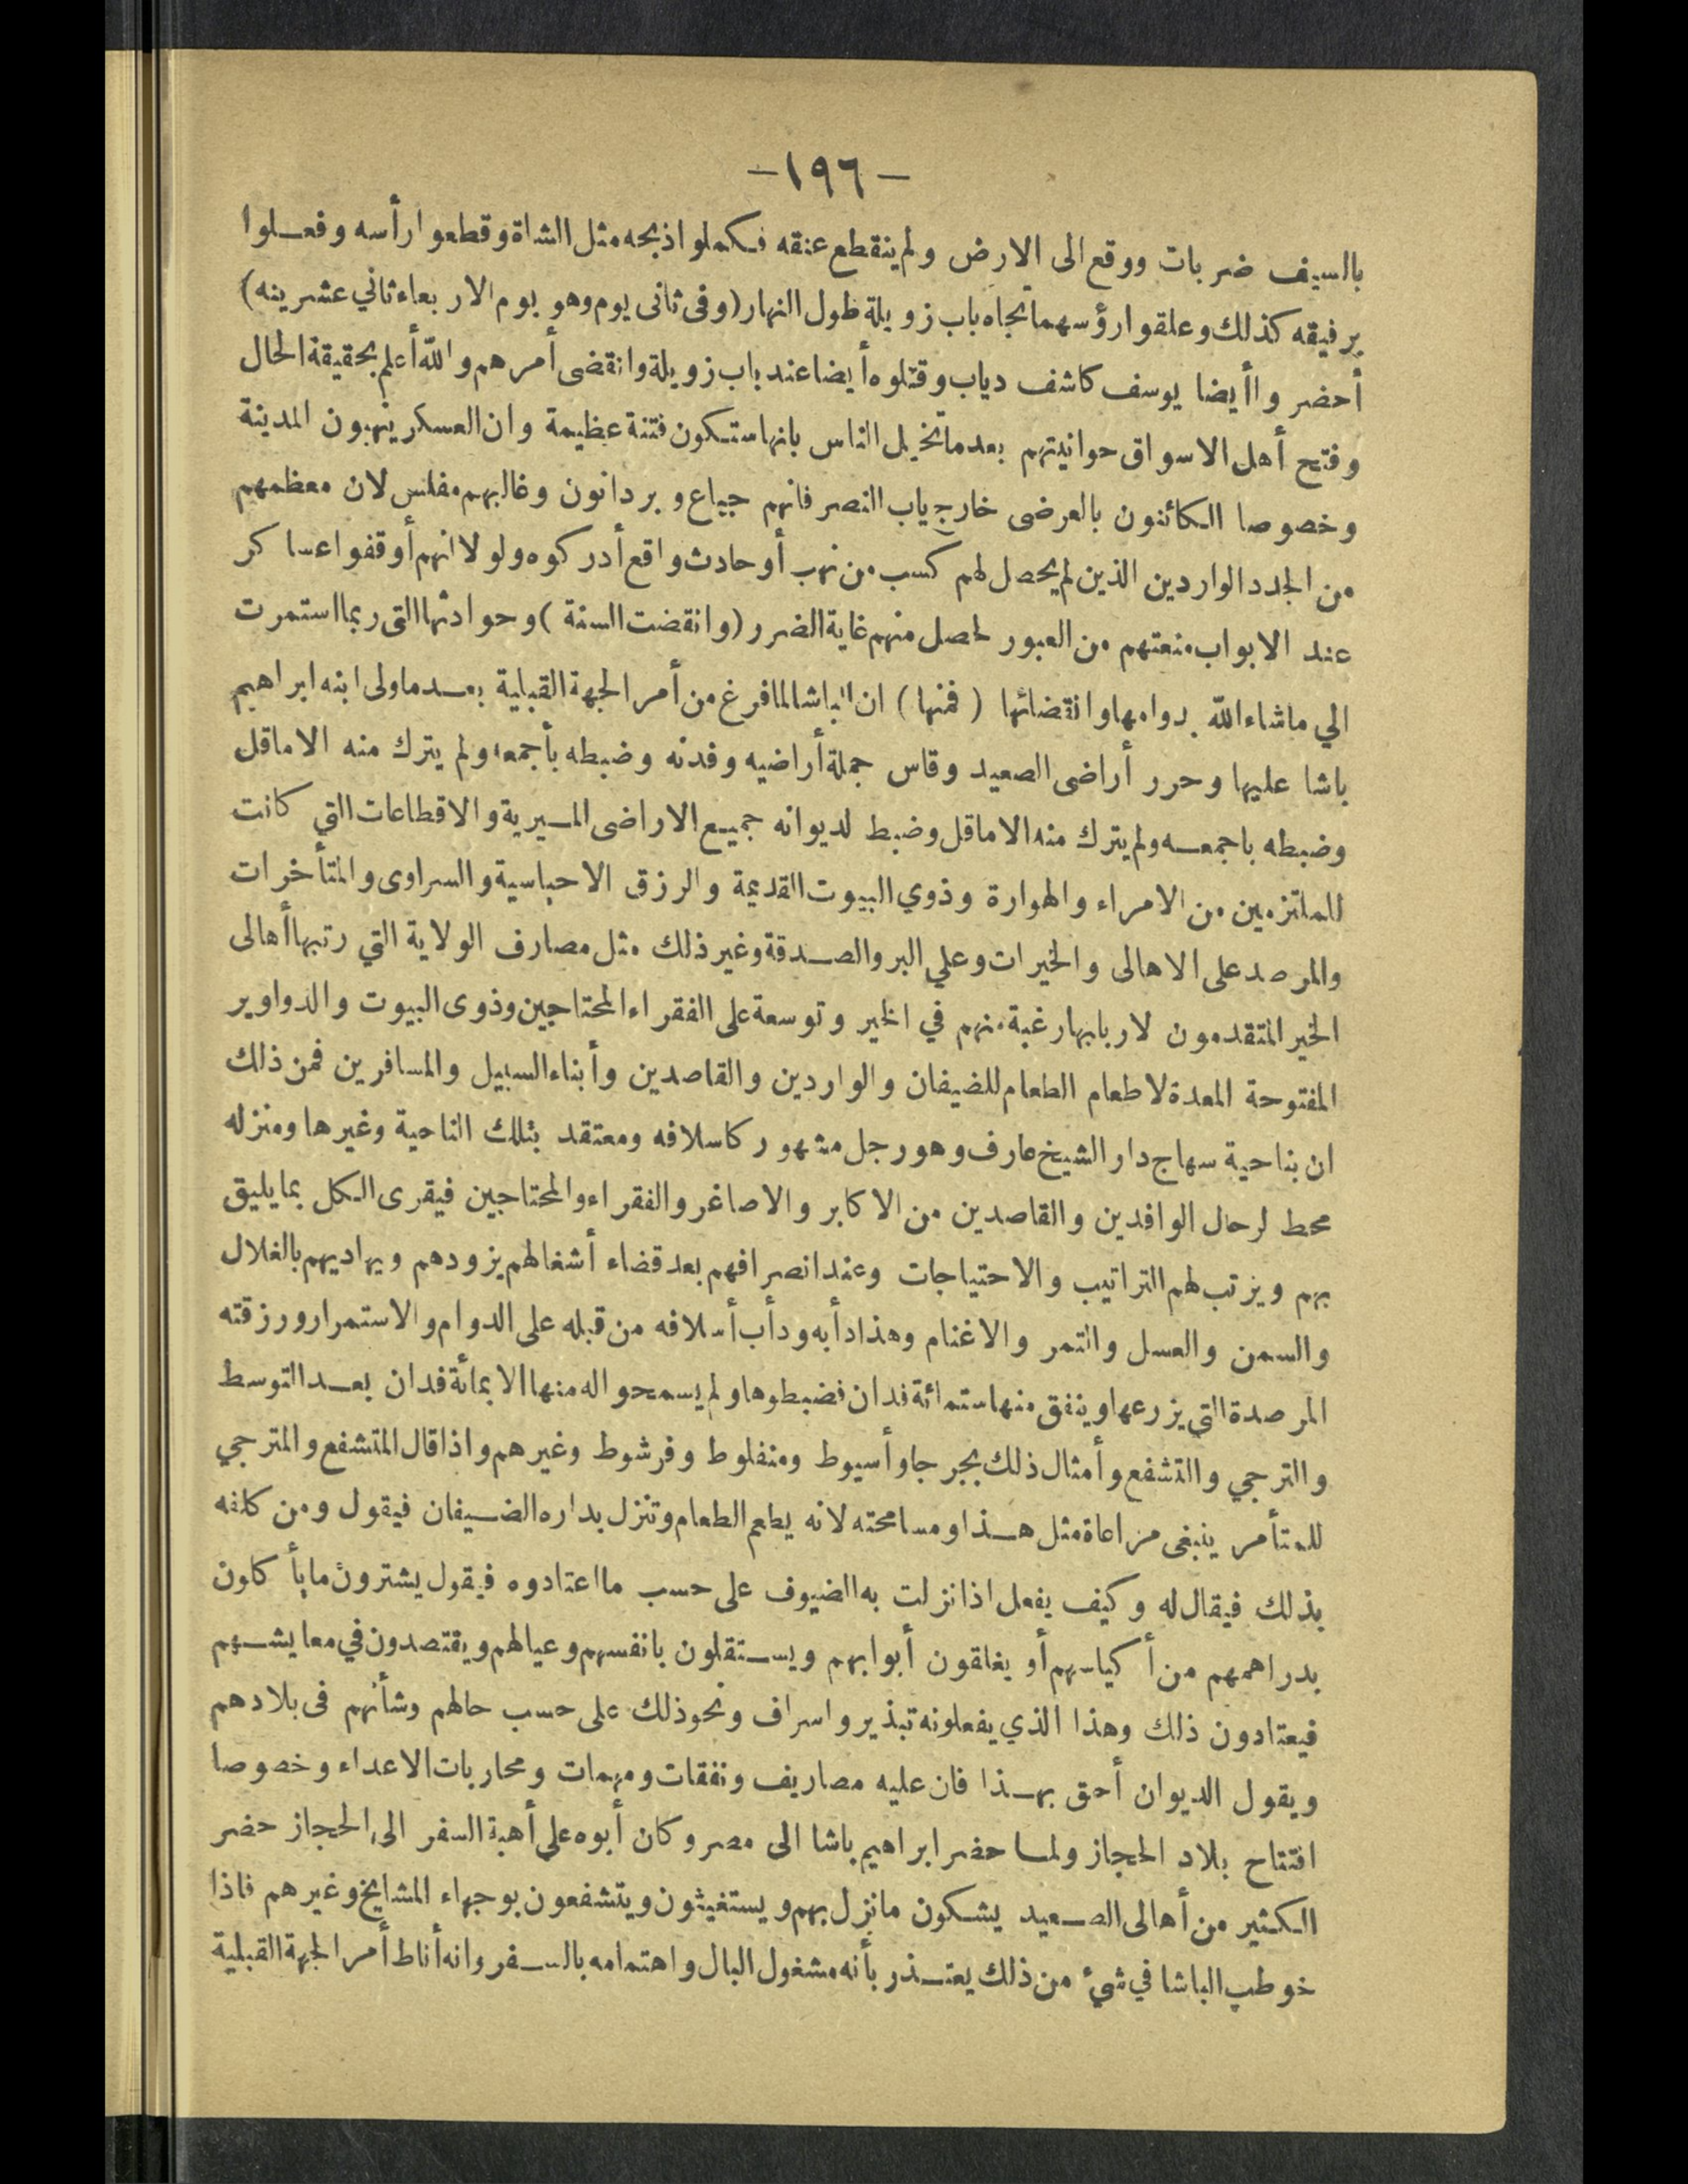 -١٩٦-
بالسيف ضربات ووقع الى الارض ولم ينقطع عنقه فكملوا ذبحه مثل الشاة وقطعوا رأسه وفعلوا
برفيقه كذلك وعلقوا رؤسهما تجاه باب زويلة طول النهار (وفى ثانى يوم وهو يوم الاربعاء ثاني عشرينه)
أحضروا أيضا يوسف كاشف دياب وقتلوه أيضا عند باب زويلة وانقضى أمرهم والله أعلم بحقيقة الحال
وفتح أهل الاسواق حوانيتهم بعد ما تخيل الناس بانها ستكون فتنة عظيمة وان العسكر ينهبون المدينة
وخصوصا الكائنون بالعرضى خارج باب النصر فانهم جياع وبردانون وغالبهم مفلس لان معظمهم
من الجدد الواردين الذين لم يحصل لهم كسب من نهب أو حادث واقع أدركوه ولولا انهم أوقفوا عساكر
عند الابواب منعتهم من العبور لحصل منهم غاية الضرر (وانقضت السنة) وحوادثها التى ربما استمرت
الي ماشاء الله بدوامها وانقضائها (فمنها) ان الباشا لما فرغ من أمر الجهة القبلية بعد ما ولى ابنه ابراهيم
باشا عليها وحرر أراضى الصعيد وقاس جملة أراضيه وفدنه وضبطه بأجمعه ولم يترك منه الا ماقل
وضبطه باجمعه ولم يترك منه الا ماقل وضبط لديوانه جميع الاراضى الميرية والاقطاعات التي كانت
للملتزمين من الامراء والهوارة وذوي البيوت القديمة والرزق الاحباسية والسراوى والمتأخرات
والمرصد على الاهالى والخيرات وعلي البر والصدقة وغير ذلك مثل مصارف الولاية التي رتبها أهالى
الخير المتقدمون لاربابها رغبة منهم في الخير وتوسعة على الفقراء المحتاجين وذوى البيوت والدواوير
المفتوحة المعدة لاطعام الطعام للضيفان والواردين والقاصدين وأبناء السبيل والمسافرين فمن ذلك
ان بناحية سهاج دار الشيخ عارف وهو رجل مشهور كاسلافه ومعتقد بتلك الناحية وغيرها ومنزله
محط لرحال الوافدين والقاصدين من الاكابر والاصاغر والفقراء والمحتاجين فيقرى الكل بما يليق
بهم ويرتب لهم التراتيب والاحتياجات وعند انصرافهم بعد قضاء أشغالهم يزودهم ويهاديهم بالغلال
والسمن والعسل والتمر والاغنام وهذا دأبه ودأب أسلافه من قبله على الدوام والاستمرار ورزقته
المرصدة التي يزرعها وينفق منها ستمائة فدان فضبطوها ولم يسمحوا له منها الا بمائة فدان بعد التوسط
والترجي والتشفع وأمثال ذلك بجرجا وأسيوط ومنفلوط وفرشوط وغيرهم واذا قال المتشفع والمترجي
للمتأمر ينبغى مراعاة مثل هذا ومسامحته لانه يطعم الطعام وتنزل بداره الضيفان فيقول ومن كلفه
بذلك فيقال له وكيف يفعل اذا نزلت به الضيوف على حسب ما اعتادوه فيقول يشترون ما يأكلون
بدراهمهم من أكياسهم أو يغلقون أبوابهم ويستقلون بانفسهم وعيالهم ويقتصدون في معايشهم
فيعتادون ذلك وهذا الذي يفعلونه تبذير واسراف ونحو ذلك على حسب حالهم وشأنهم فى بلادهم
ويقول الديوان أحق بهذا فان عليه مصاريف ونفقات ومهمات ومحاربات الاعداء وخصوصا
افتتاح بلاد الحجاز ولما حضر ابراهيم باشا الى مصر وكان أبوه علي أهبة السفر الى الحجاز حضر
الكثير من أهالى الصعيد يشكون مانزل بهم ويستغيثون ويتشفعون بوجهاء المشايخ وغيرهم فاذا
خوطب الباشا في شيء من ذلك يعتذر بأنه مشغول البال واهتمامه بالسفر وانه أناط أمر الجهة القبلية